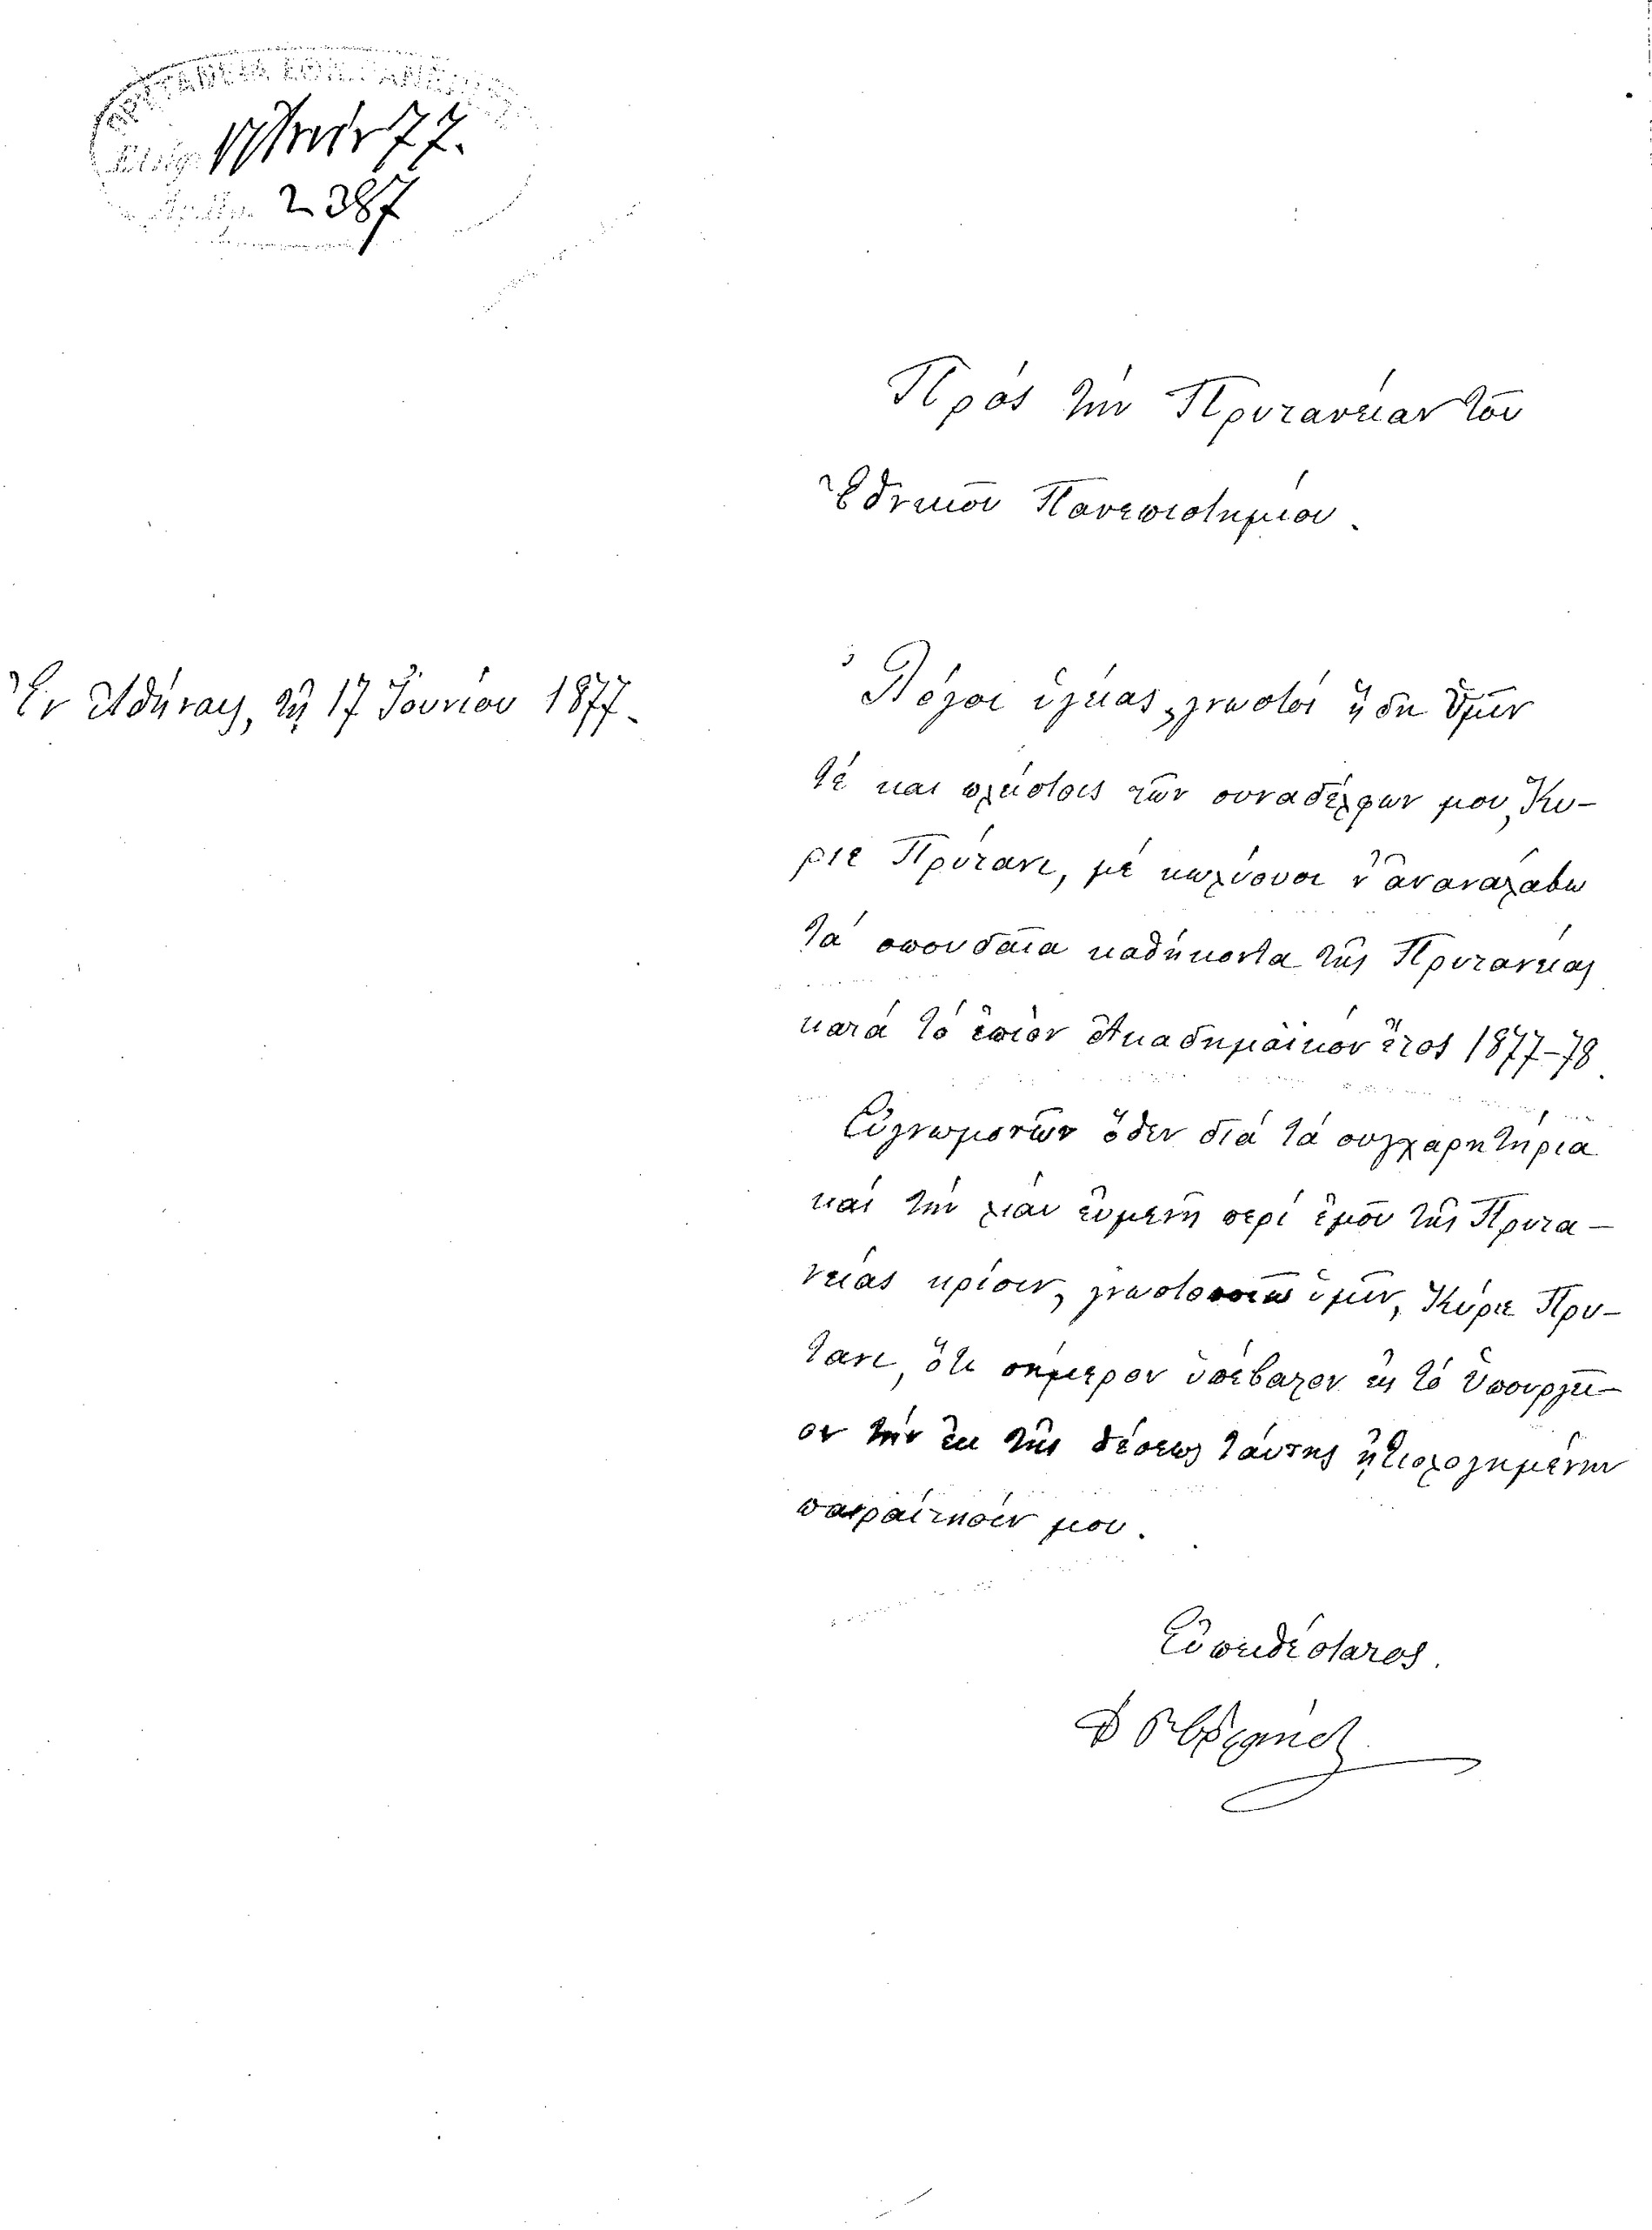 ΠΡΥΤΑΝΕΙΑ ΕΘΝ. ΠΑΝΕΠΙΣΤ.
17 Ἰουν 77.
2387
Πρὸς τὴν Πρυτανείαν τοῦ
Ἐθνικοῦ Πανεπιστημίου.
Ἐν Ἀθήναις, τῇ 17 Ἰουνίου 1877.
Λόγοι ὑγείας, γνωστοὶ ἤδη Ὑμῖν
τὲ καὶ πλείστοις τῶν συναδέλφων μου, Κύ-
ριε Πρύτανι, μὲ κωλύουσι ν' ἀναναλάβω
τὰ σπουδαῖα καθήκοντα τῆς Πρυτανείας
κατὰ τὸ ἐπιὸν Ἀκαδημαϊκὸν ἔτος 1877-78
Εὐγνωμονῶν ὅθεν διὰ τὰ συγχαρητήρια
καὶ τὴν λίαν εὐμενῆ περὶ ἐμοῦ τῆς Πρυτα-
νείας κρίσιν, γνωστοποιῶ ὑμῖν, Κύριε Πρύ-
τανι, ὅτι σήμερον ὑπέβαλον εἰς τὸ Ὑπουργεῖ-
ον τὴν ἐκ τῆς θέσεως ταύτης ᾐτιολογημένην
παραίτησίν μου.
Εὐπειθέστατος.